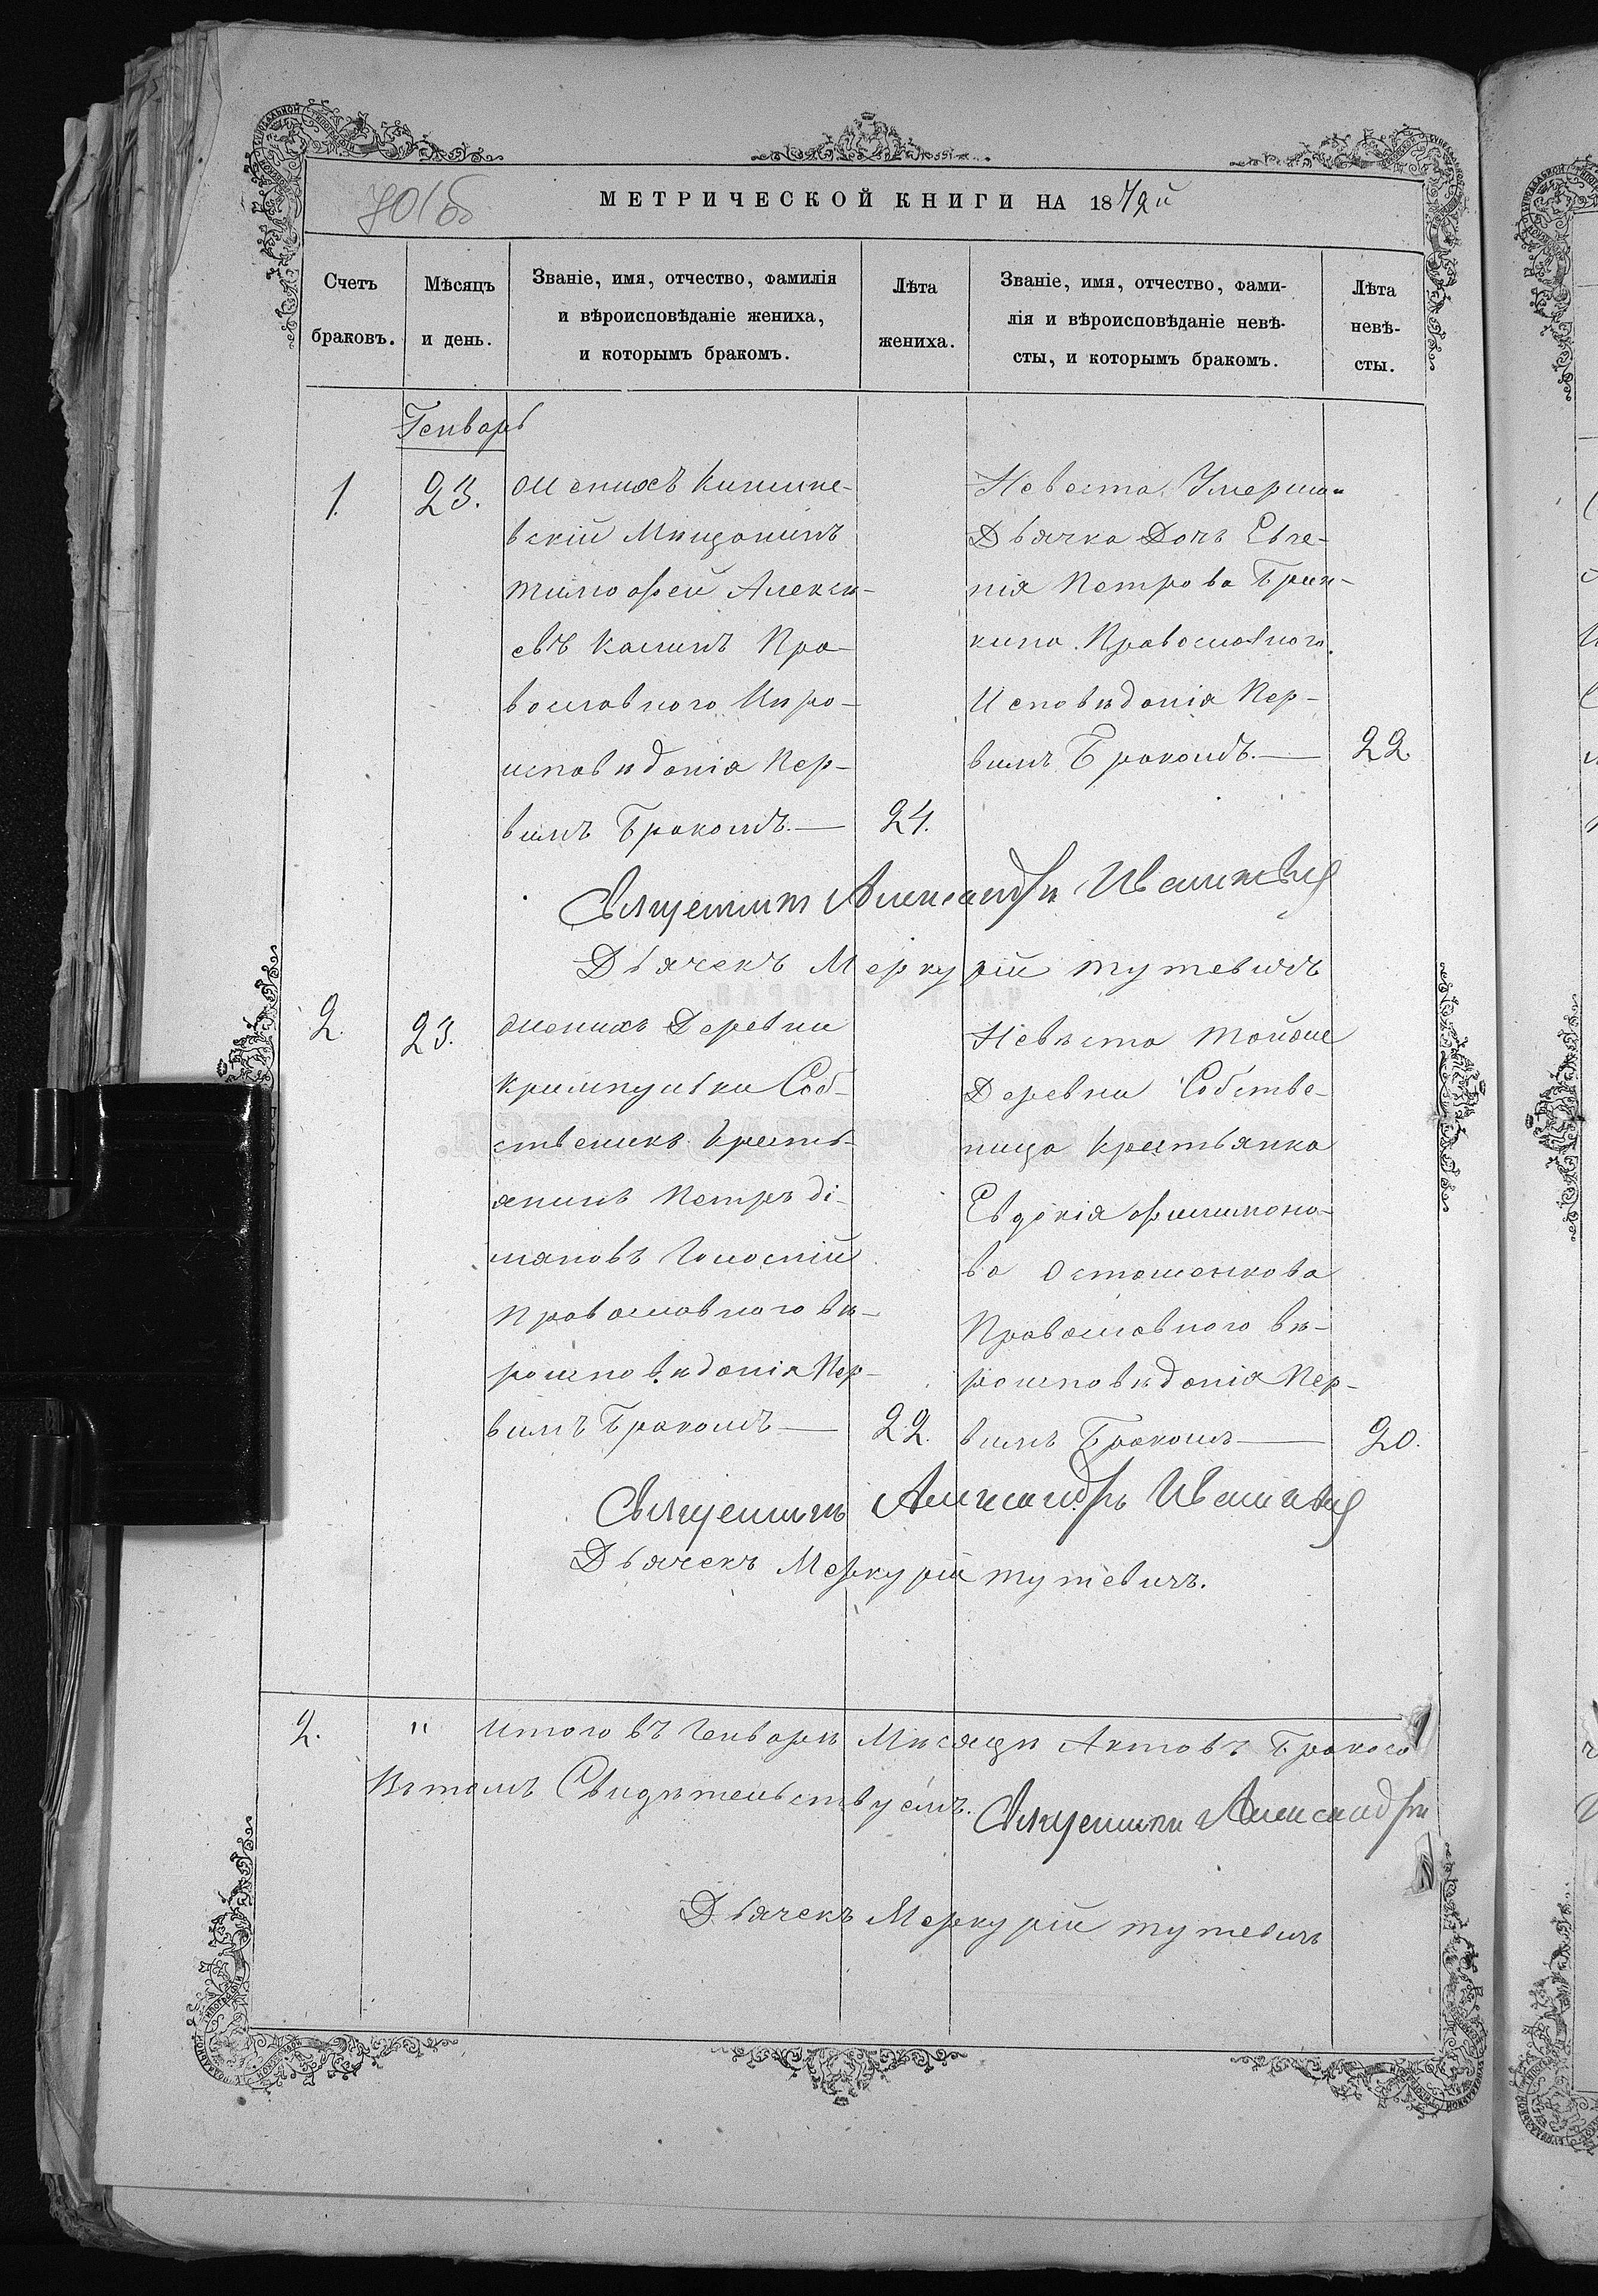 701об
МЕТРИЧЕСКОЙ КНИГИ НА 1872й
Счетъ браковъ.
Мѣсяцъ и день.
Званіе, имя, отчество, фамилія
и вѣроисповѣданіе жениха,
и которымъ бракомъ.
Лѣта жениха.
Званіе, имя, отчество, фами-
лія и вѣроисповѣданіе невѣ-
сты, и которымъ бракомъ.
Лѣта невѣ-
сты.
Генварь
1.
23.
Женихъ Кишине-
вскій Мѣщанинъ
Тимофей Алексѣ-
евъ Калинъ Пра-
вославного Вѣро-
исповѣданія Пер-
вимъ Бракомъ.
24.
Невеста Умерша
Дьячка Дочь Евге-
нія Петрова
кина Православного
Исповѣданія Пер-
вимъ Бракомъ.
22.
Священникъ Александръ
Дьячекъ Меркурій Тутевичъ
2.
23.
Женихъ Деревни
Соб-
ственикъ Кресть-
янинъ Петръ
Православного вѣ-
роисповѣданія Пер-
вимъ Бракомъ
22.
Невѣста Тойже
Деревни Собстве-
ница Крестьянка
Евдокія Филимоно-
ва Осташенкова
Православного вѣ-
роисповѣданія Пер-
вимъ Бракомъ
20.
Священникъ Александръ
Дьячекъ Меркурій Тутевичъ.
2.
"
Итого въ Генварѣ Мѣсяцѣ Актовъ Брако
Въ томъ Свидѣтельствуемъ. Священникъ Александръ
Дьячекъ Меркурій Тутевичъ